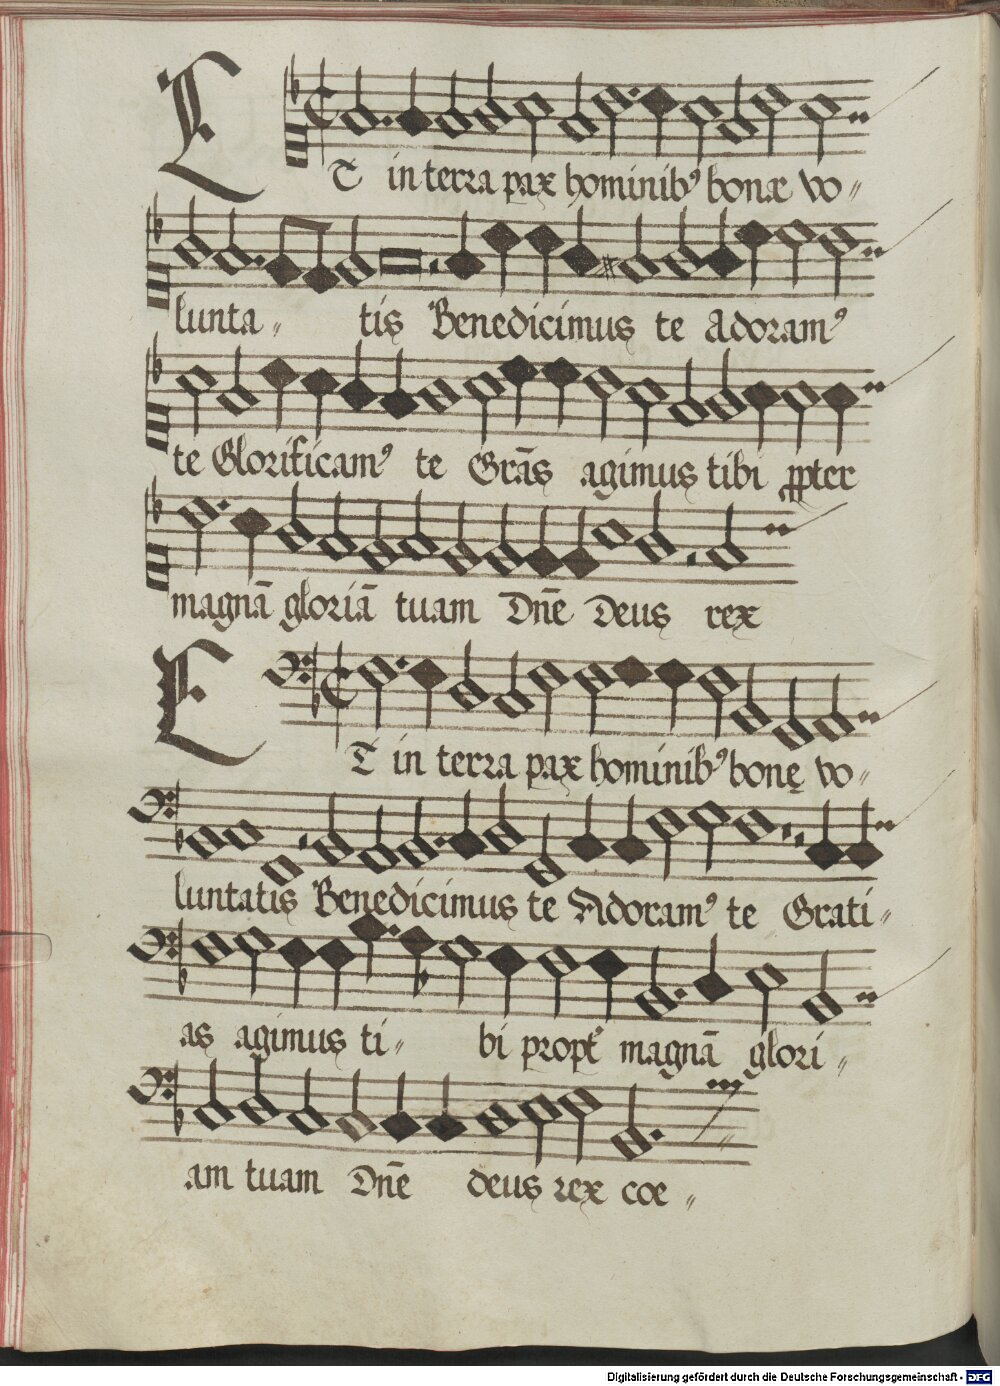 ET in terra pax hominib⁹ bonæ vo-
lunta- tis Benedicimus te Adoram⁹
te Glorificam⁹ te Grãs agimus tibi ꝓpter
magnã gloriã tuam Dñe Deus rex
ET in terra pax hominib⁹ bonę vo-
luntatis Benedicimus te Adoram⁹ te Grati-
as agimus ti- bi propt̃ magnã glori-
am tuam Dñe deus rex coe-
Digitalisierung gefördert durch die Deutsche Forschungsgemeinschaft - DFG